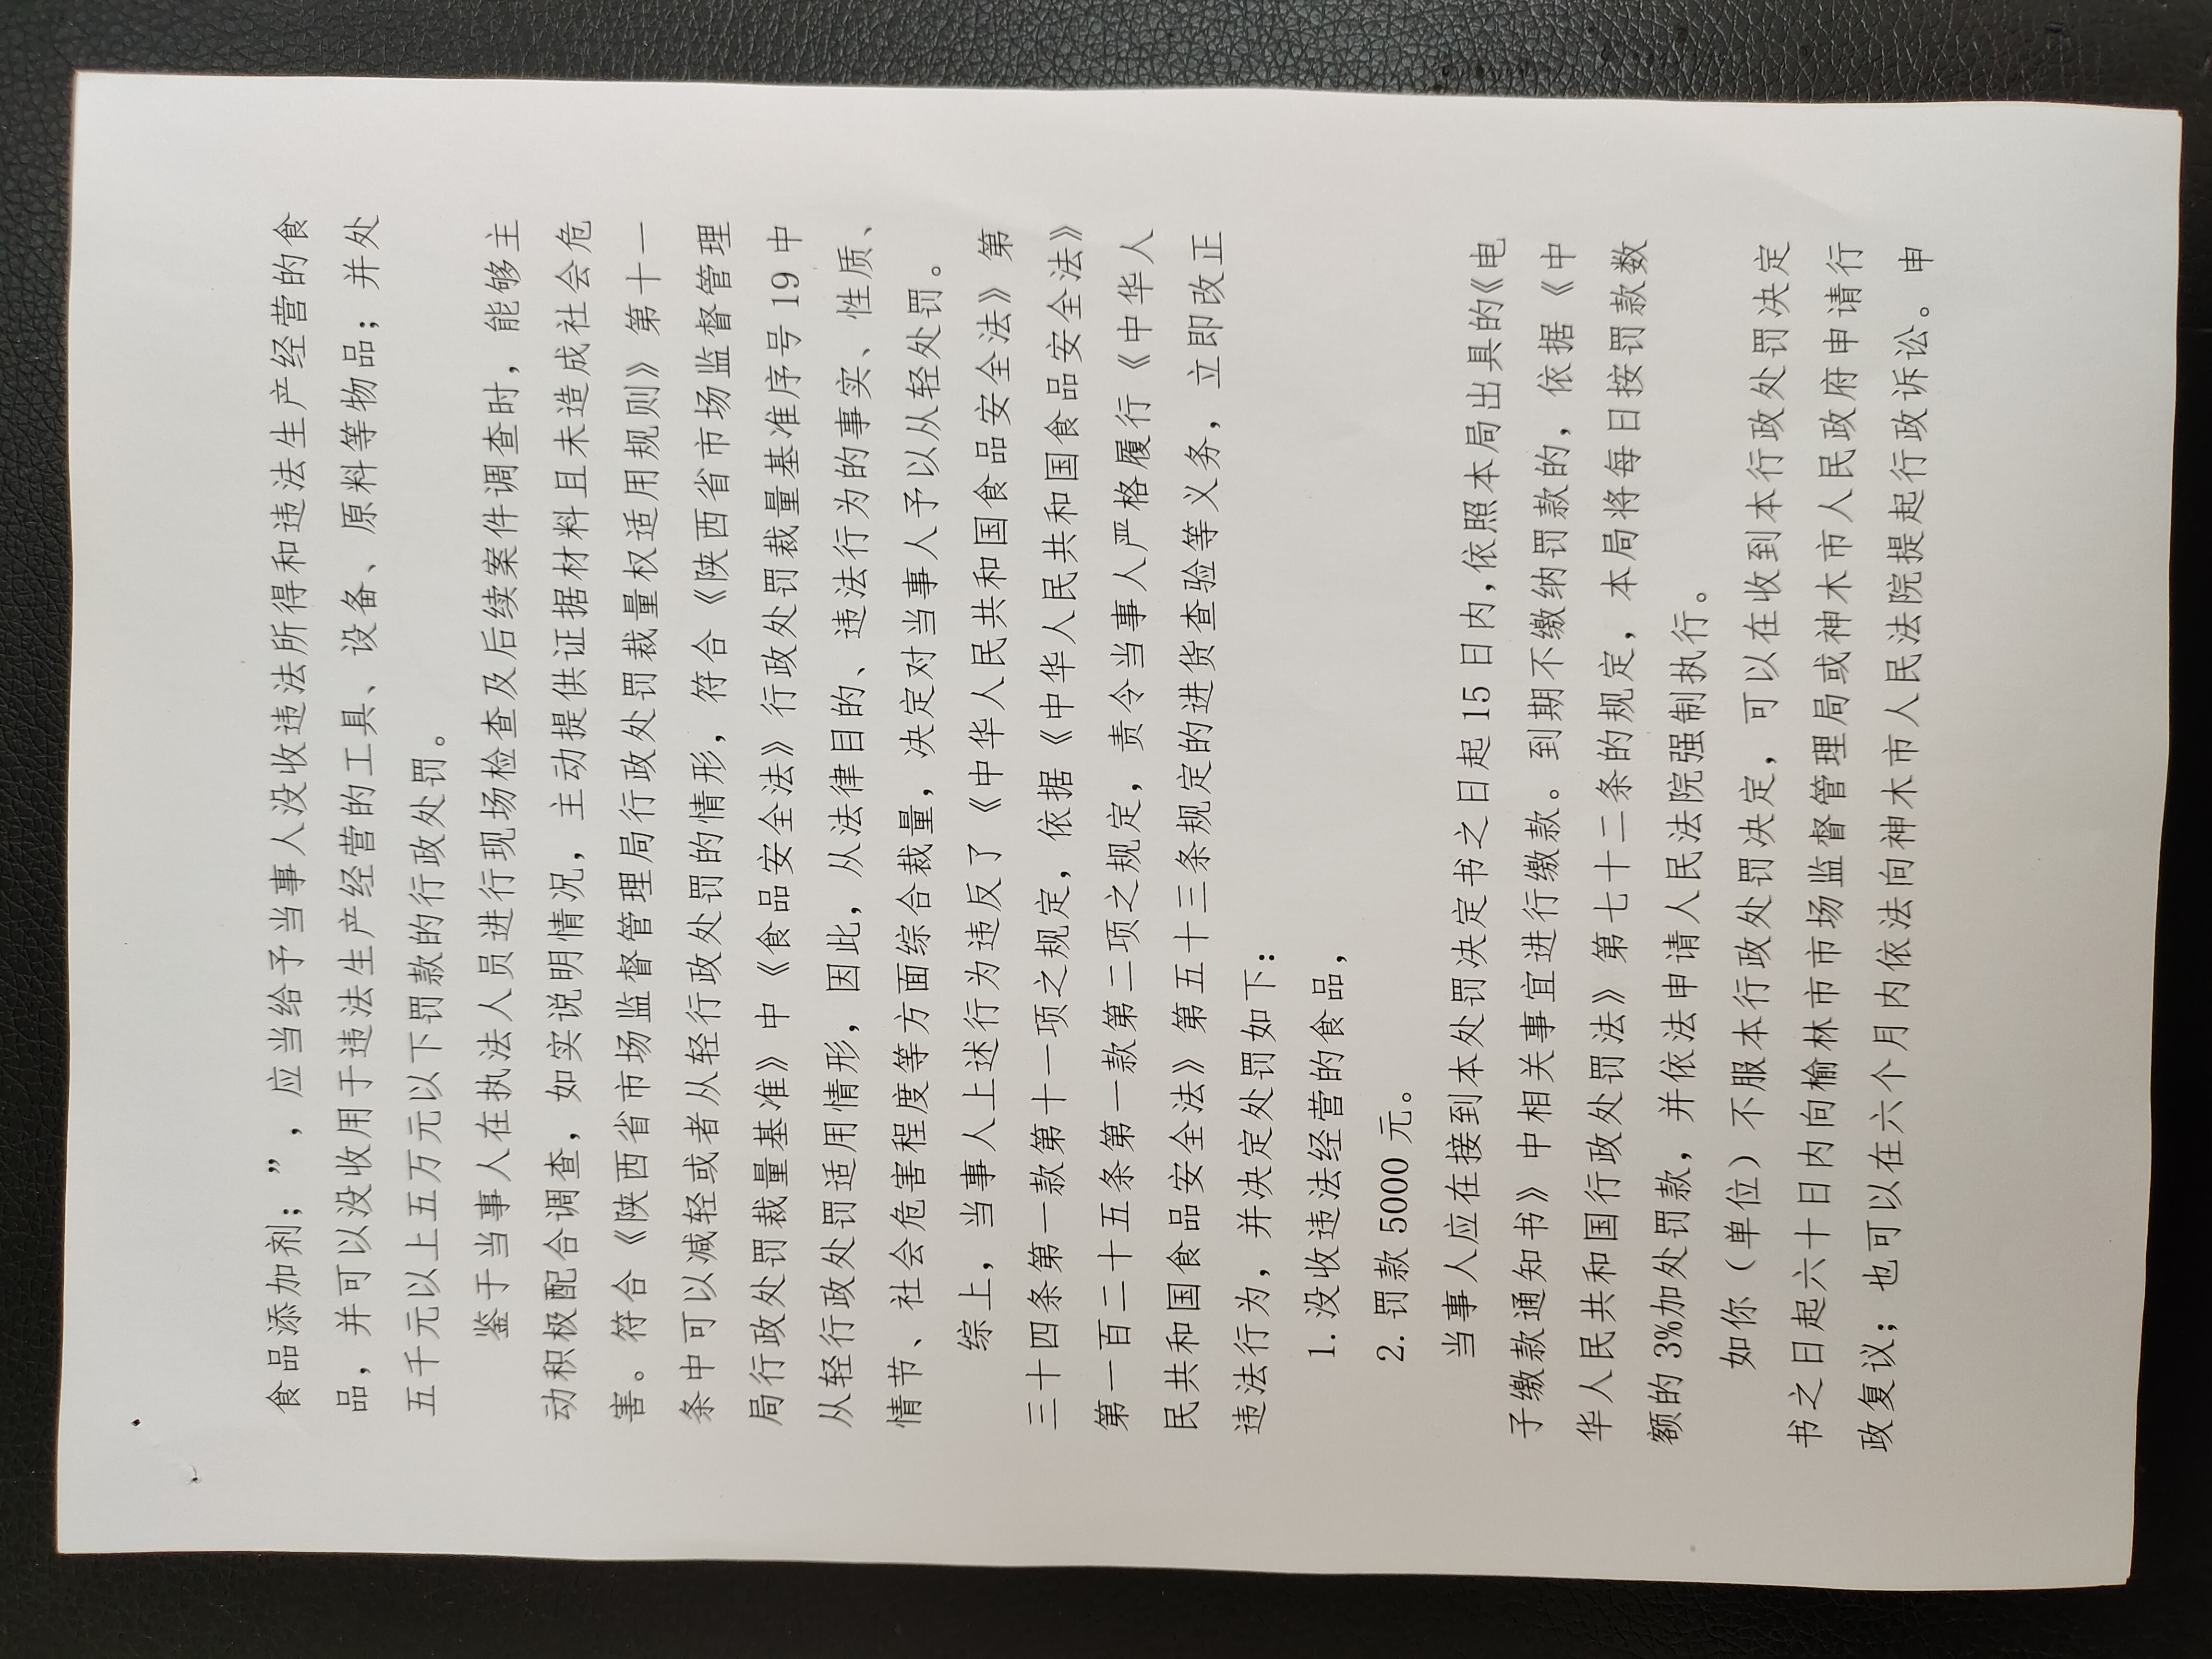 食品添加剂；”，应当给予当事人没收违法所得和违法生产经营的食
品，并可以没收用于违法生产经营的工具、设备、原料等物品；并处
五千元以上五万元以下罚款的行政处罚。
鉴于当事人在执法人员进行现场检查及后续案件调查时，能够主
动积极配合调查，如实说明情况，主动提供证据材料且未造成社会危
害。符合《陕西省市场监督管理局行政处罚裁量权适用规则》第十一
条中可以减轻或者从轻行政处罚的情形，符合《陕西省市场监督管理
局行政处罚裁量基准》中《食品安全法》行政处罚裁量基准序号 19 中
从轻行政处罚适用情形，因此，从法律目的、违法行为的事实、性质、
情节、社会危害程度等方面综合裁量，决定对当事人予以从轻处罚。
综上，当事人上述行为违反了《中华人民共和国食品安全法》第
三十四条第一款第十一项之规定，依据《中华人民共和国食品安全法》
第一百二十五条第一款第二项之规定，责令当事人严格履行《中华人
民共和国食品安全法》第五十三条规定的进货查验等义务，立即改正
违法行为，并决定处罚如下：
1. 没收违法经营的食品，
2. 罚款 5000 元。
当事人应在接到本处罚决定书之日起 15 日内,依照本局出具的《电
子缴款通知书》中相关事宜进行缴款。到期不缴纳罚款的，依据《中
华人民共和国行政处罚法》第七十二条的规定，本局将每日按罚款数
额的 3%加处罚款，并依法申请人民法院强制执行。
如你（单位）不服本行政处罚决定，可以在收到本行政处罚决定
书之日起六十日内向榆林市市场监督管理局或神木市人民政府申请行
政复议；也可以在六个月内依法向神木市人民法院提起行政诉讼。申